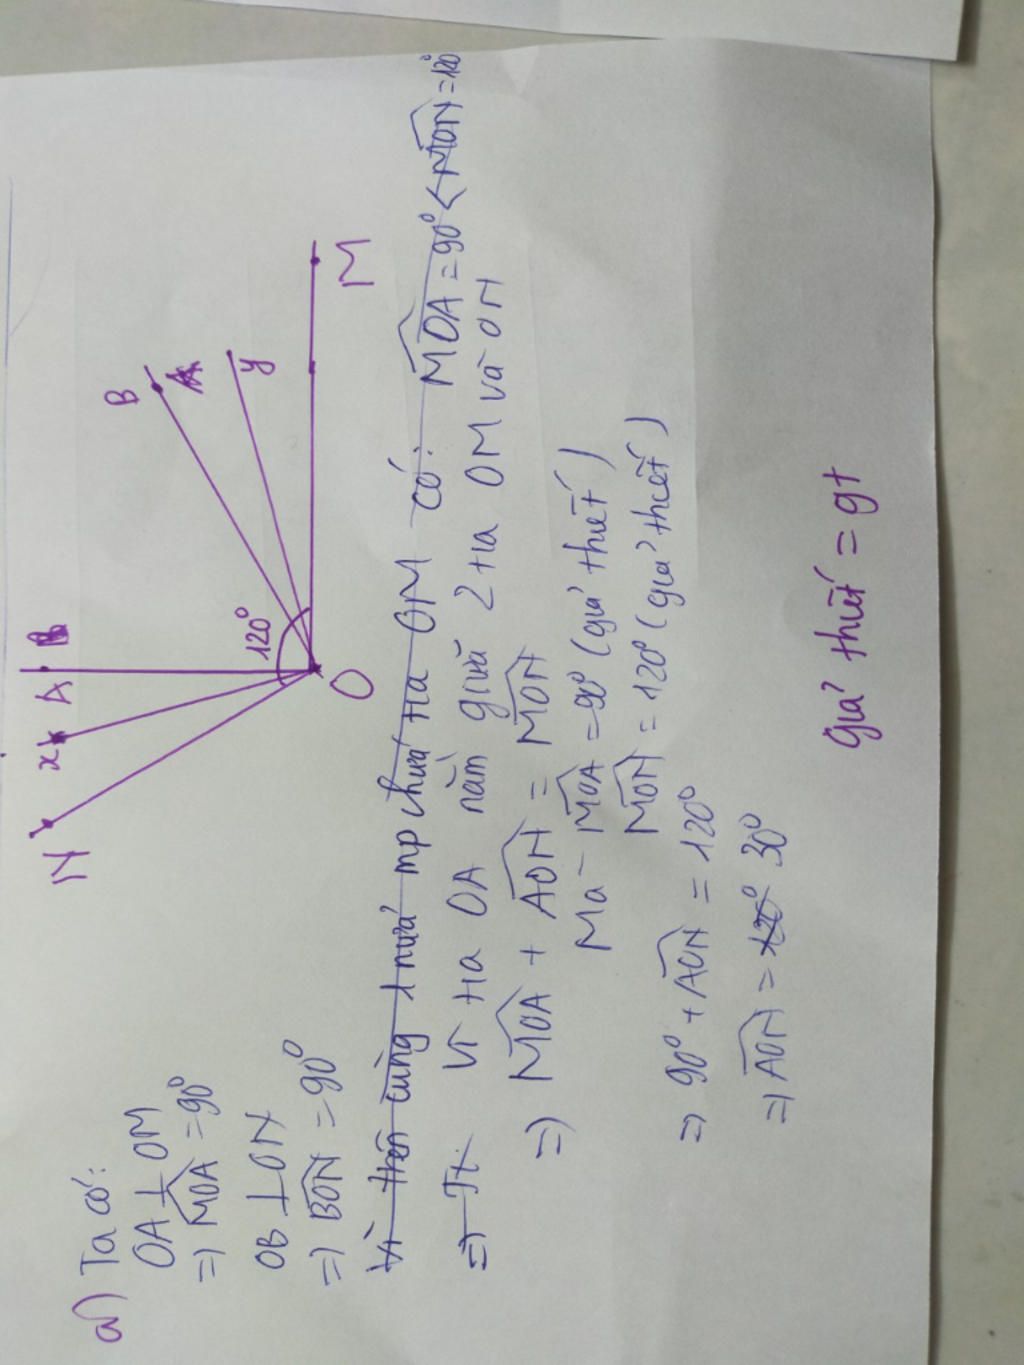 a) Ta có:
OA ⊥ OM
=> MOA = 90°
OB ⊥ ON
=> BON = 90°
N
x
A
B
A
y
120°
O
M
Vì trên cùng 1 nửa mp chứa tia OM có: MOA = 90° < MON = 120°
=> Tt Vì tia OA nằm giữa 2 tia OM và ON
=> MOA + AON = MON
Mà MOA = 90° (giả thiết)
MON = 120° (giả thiết)
=> 90° + AON = 120°
=> AON = 30°
giả thiết = gt